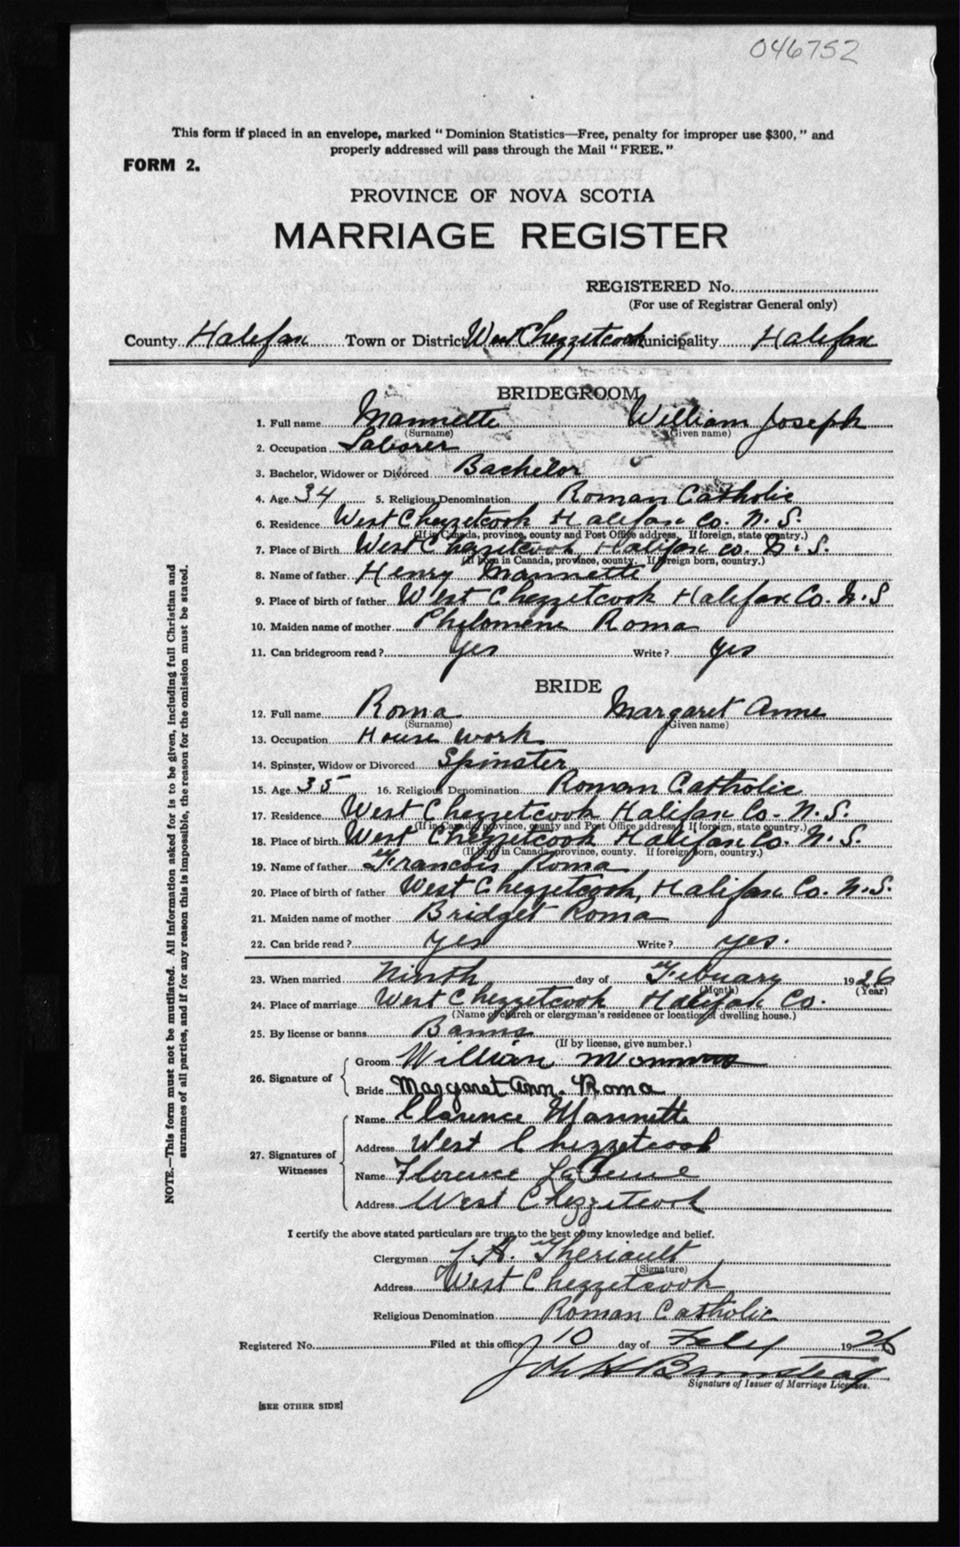 046752
This form if placed in an envelope, marked " Dominion Statistics—Free, penalty for improper use $300, " and
properly addressed will pass through the Mail " FREE. "
FORM 2.
PROVINCE OF NOVA SCOTIA
MARRIAGE REGISTER
REGISTERED No.
(For use of Registrar General only)
County Halifax Town or District West Chezzetcook Municipality Halifax
BRIDEGROOM
1. Full name Mannette William Joseph
(Surname) (Given name)
2. Occupation Laborer
3. Bachelor, Widower or Divorced Bachelor
4. Age 34 5. Religious Denomination Roman Catholic
6. Residence West Chezzetcook Halifax Co. N. S.
(If in Canada, province, county and Post Office address. If foreign, state country.)
7. Place of Birth West Chezzetcook, Halifax Co. N. S.
(If born in Canada, province, county. If foreign born, country.)
8. Name of father Henry Mannette
9. Place of birth of father West Chezzetcook Halifax Co. N. S
10. Maiden name of mother Philomene Roma
11. Can bridegroom read? Yes Write? Yes
BRIDE
12. Full name Roma Margaret Anne
(Surname) (Given name)
13. Occupation House work
14. Spinster, Widow or Divorced Spinster
15. Age 35 16. Religious Denomination Roman Catholic
17. Residence West Chezzetcook Halifax Co. N. S.
(If in Canada, province, county and Post Office address. If foreign, state country.)
18. Place of birth West Chezzetcook Halifax Co. N. S.
(If born in Canada, province, county. If foreign born, country.)
19. Name of father Francois Roma
20. Place of birth of father West Chezzetcook, Halifax Co. N. S.
21. Maiden name of mother Bridget Roma
22. Can bride read? yes Write? yes.
23. When married Ninth day of Febuary 1926
(Month) (Year)
24. Place of marriage West Chezzetcook Halifax Co.
(Name of church or clergyman's residence or location of dwelling house.)
25. By license or banns Banns
(If by license, give number.)
26. Signature of
Groom William
Bride Margaret Ann. Roma
27. Signatures of Witnesses
Name Clarence Mannette
Address West Chezzetcook
Name Florence
Address West Chezzetcook
I certify the above stated particulars are true to the best of my knowledge and belief.
Clergyman A. Theriault
(Signature)
Address West Chezzetcook
Religious Denomination Roman Catholic
Registered No. Filed at this office 10 day of Feby 1926
John H
Signature of Issuer of Marriage Licenses.
[SEE OTHER SIDE]
NOTE.—This form must not be mutilated. All information asked for is to be given, including full Christian and
surnames of all parties, and if for any reason this is impossible, the reason for the omission must be stated.